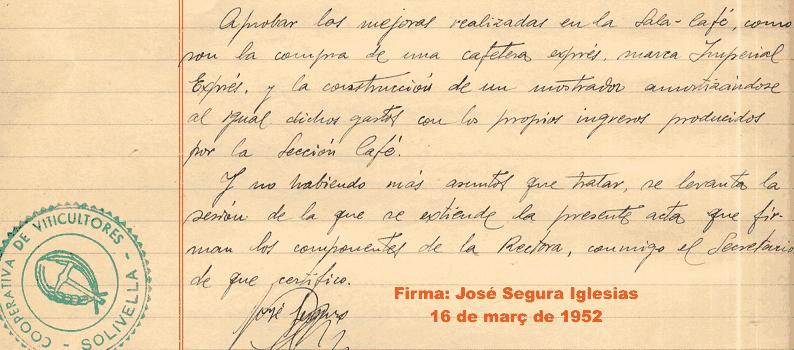 Aprobar las mejoras realizadas en la Sala-Café, como
son la compra de una cafetera exprés, marca Imperial
Exprés, y la construcción de un mostrador amortizándose
al igual dichos gastos con los propios ingresos producidos
por la Sección Café.
Y no habiendo más asuntos que tratar, se levanta la
sesión de la que se extiende la presente acta que fir-
man los componentes de la Rectora, conmigo el Secretario
de que certifico.
José Segura
Firma: José Segura Iglesias
16 de març de 1952
COOPERATIVA DE VITICULTORES - SOLIVELLA -